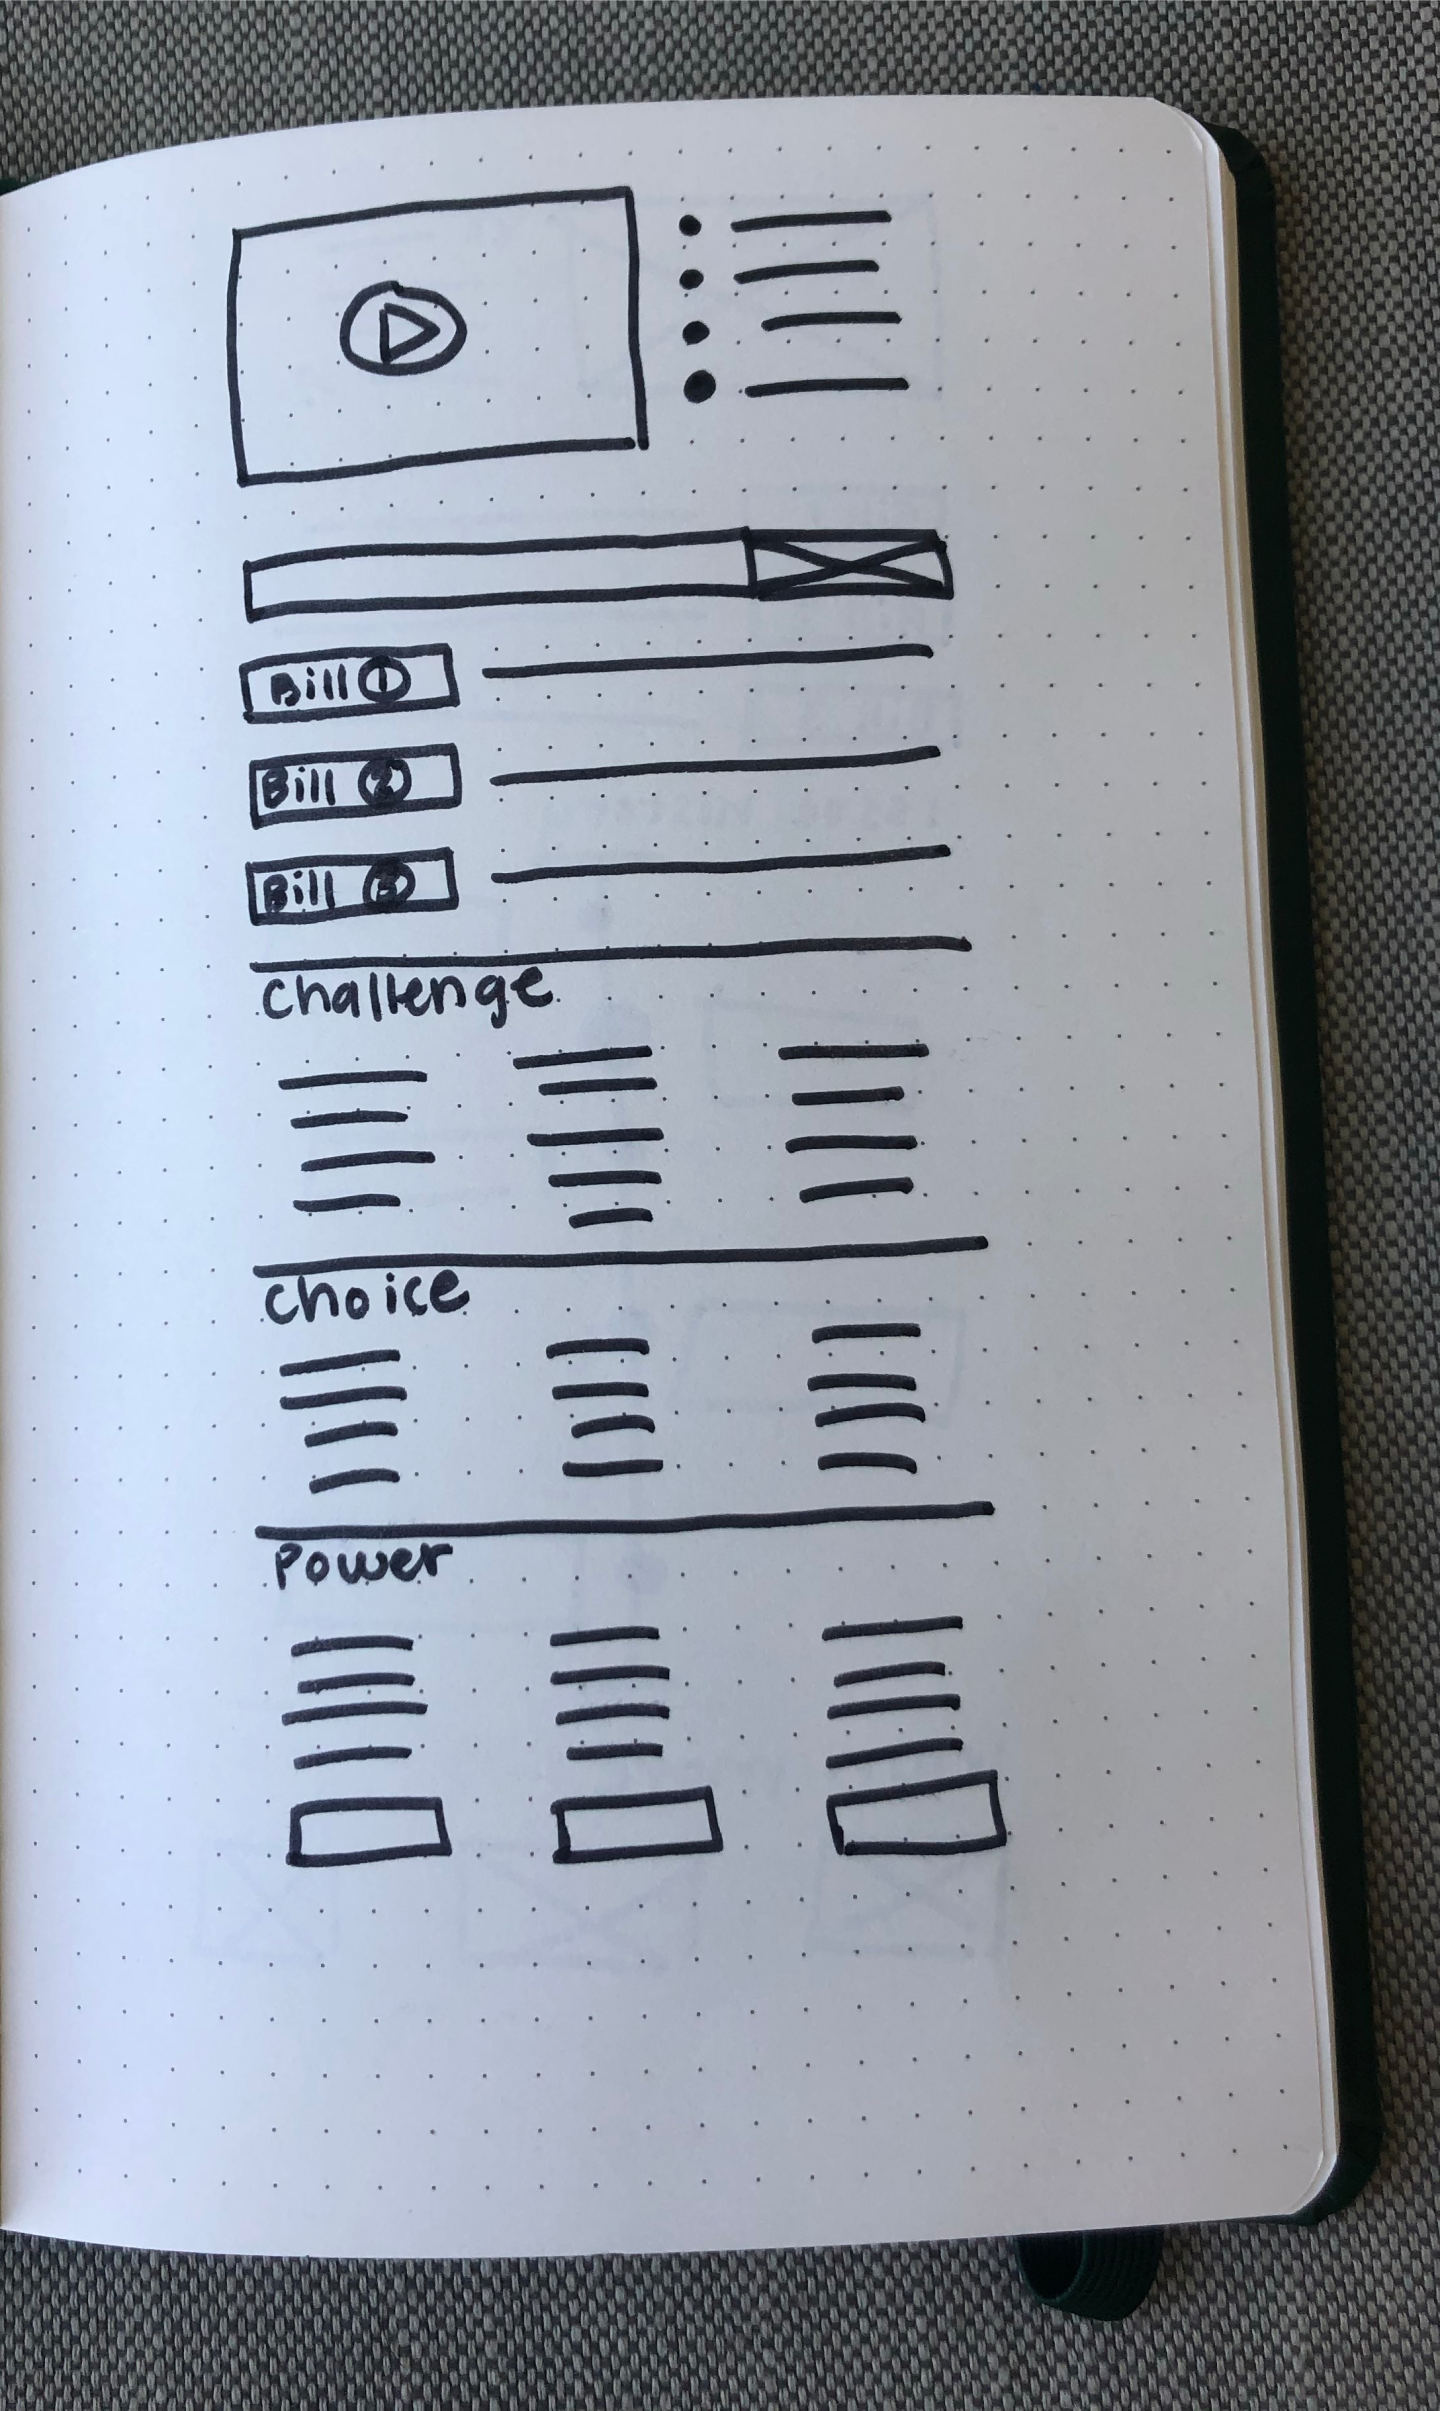 Bill 1
Bill 2
Bill 3
Challenge
Choice
Power